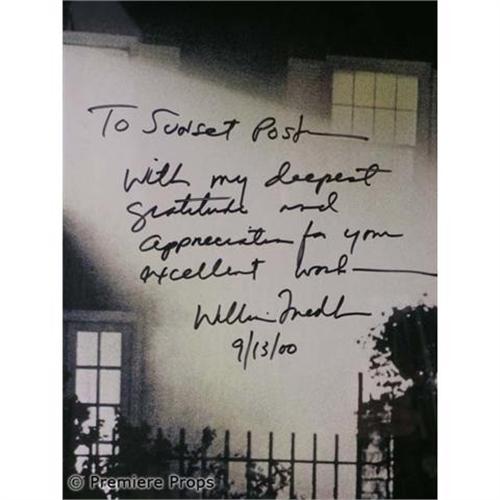 To Sunset Post
With my deepest
gratitude and
appreciation for your
excellent work
William Friedkin
9/13/00
© Premiere Props